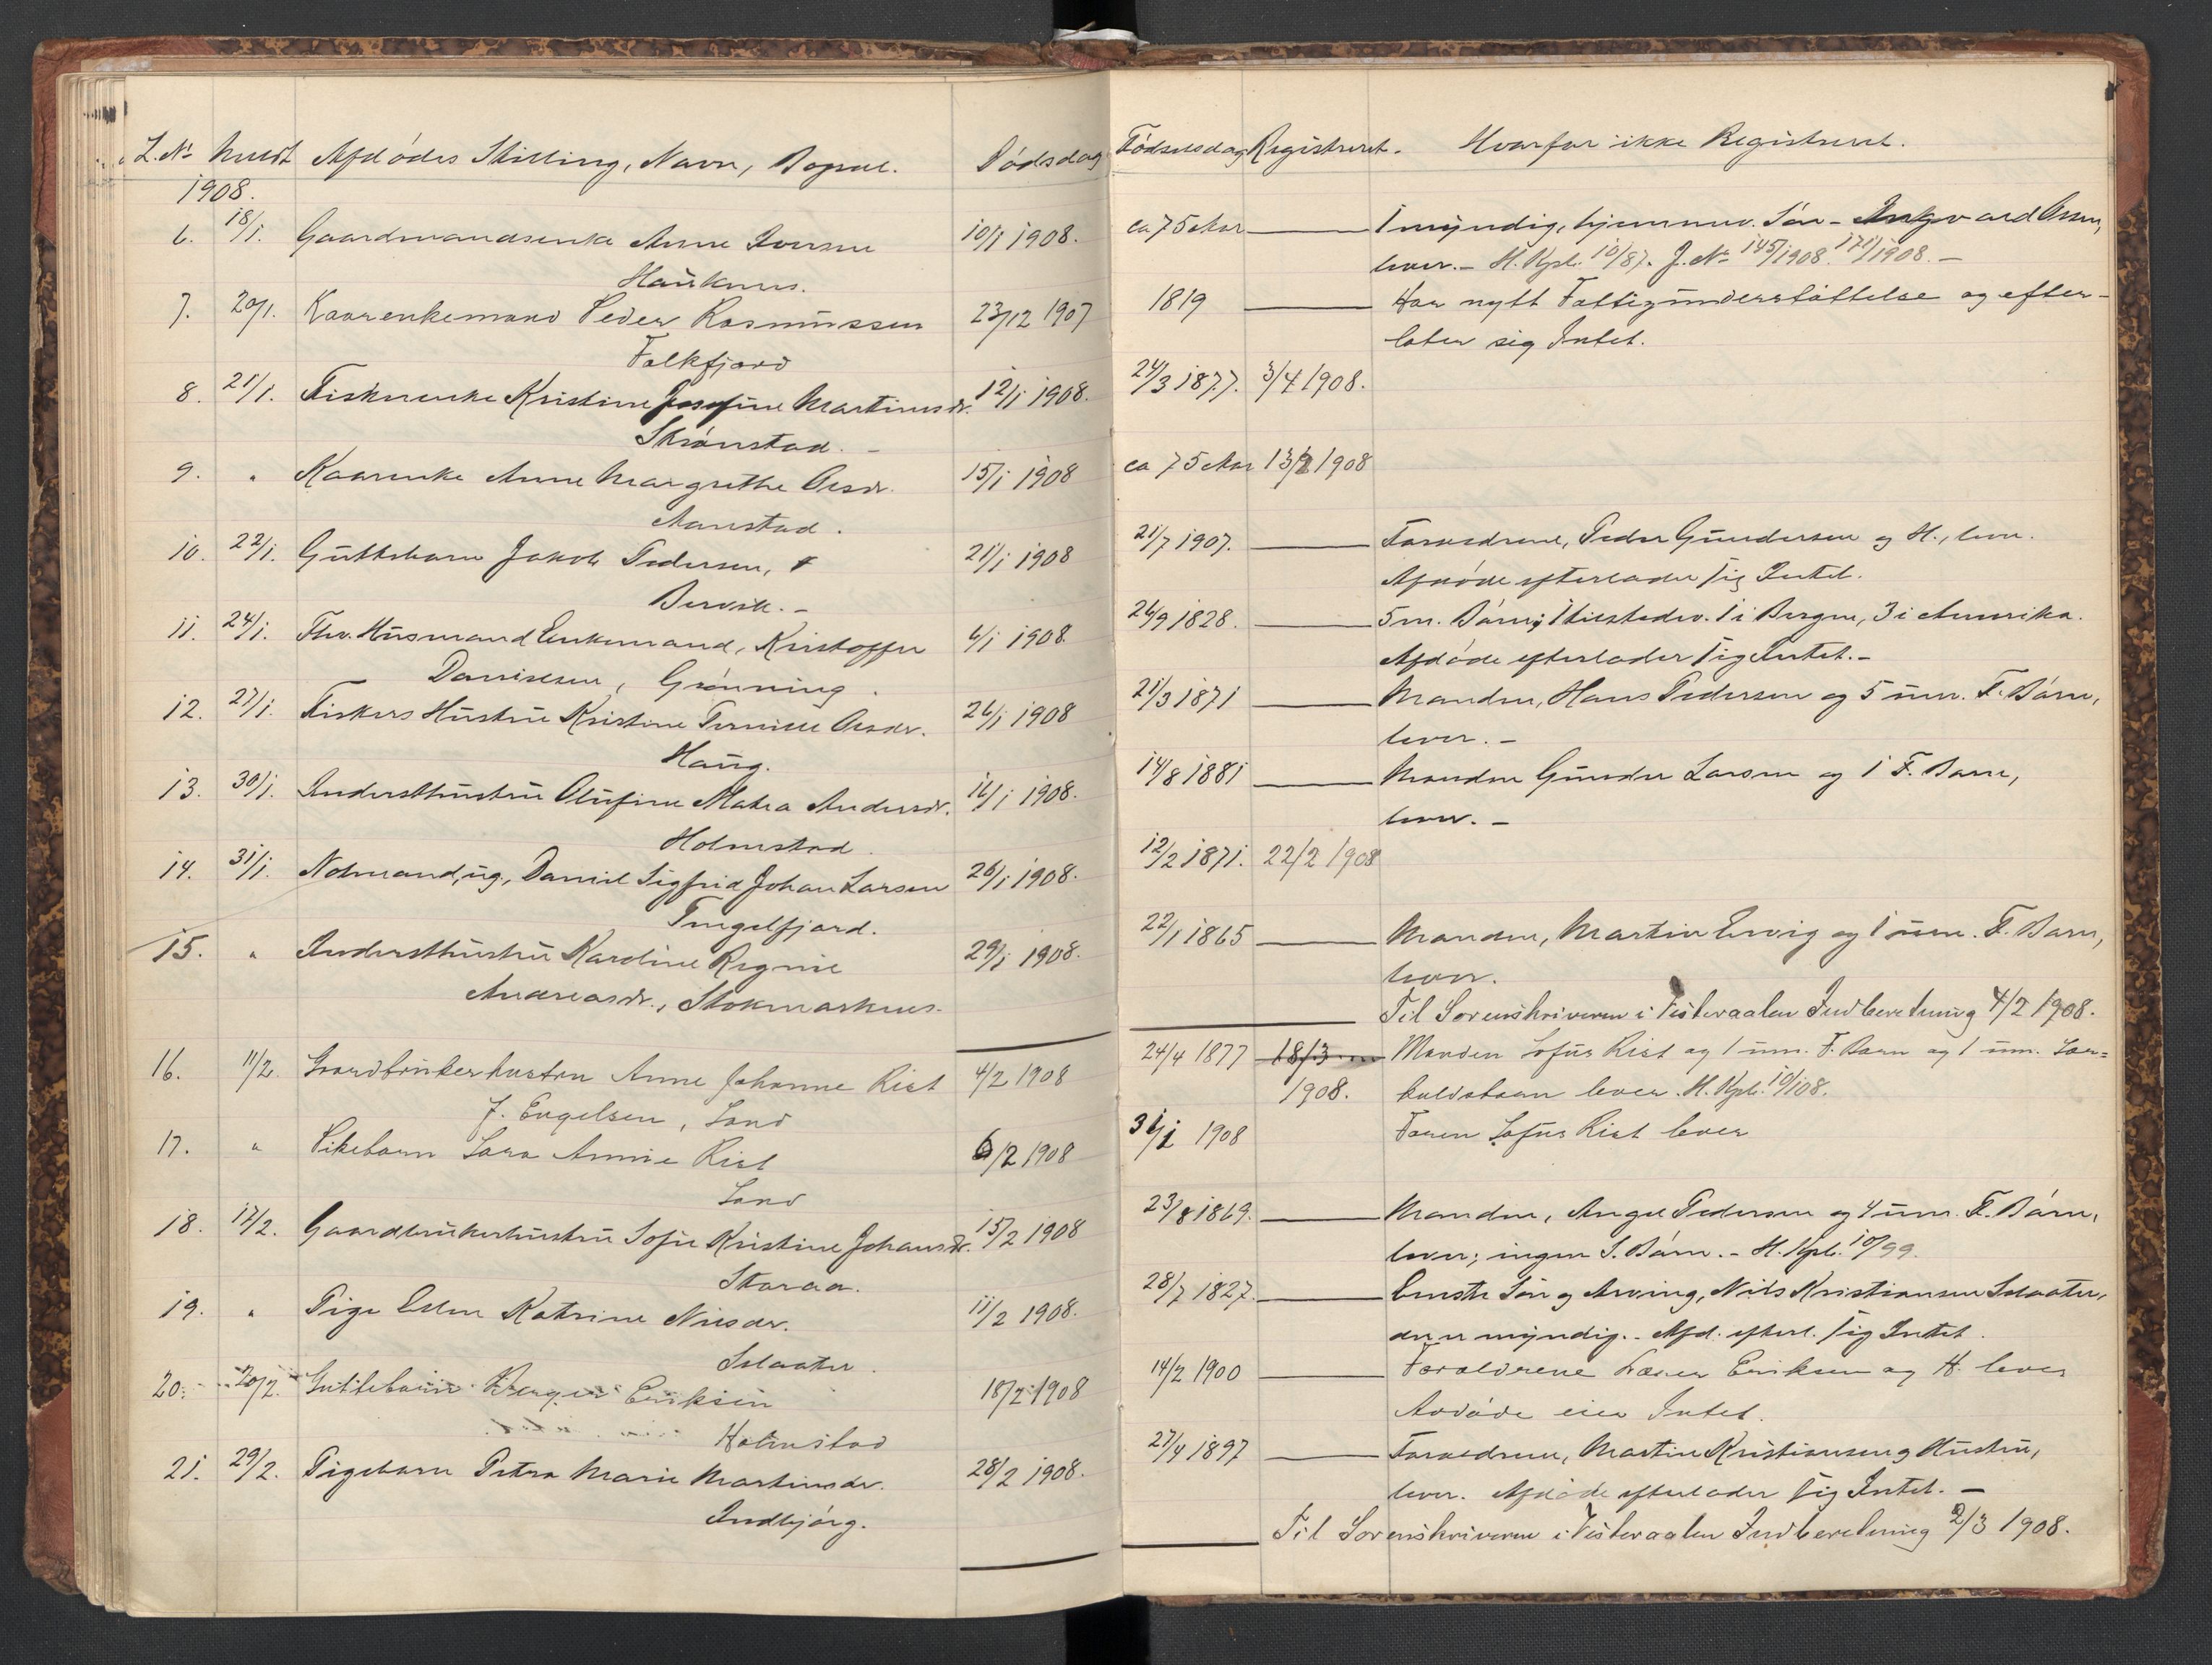 L. No Meldt Afdødes Stilling, Navn, Bopæl. Dødsdag
1908.
6. 18/1. Gaardmandsenke Anne Iversen 10/1 1908.
Hauknes.
7. 20/1. Kaarenkemand Peder Rasmussen 23/12 1907
Falkfjord
8. 21/1. Fiskerenke Kristine Josefine Martinusdr. 12/1 1908.
Skrønstad. -
9. " Kaarenke Anne Margrethe Olsdr. 15/1 1908
Aanstad.
10. 22/1. Guttebarn Jakob Pedersen, 21/1 1908
Bervik. -
11. 24/1. Fhv. Husmand Enkemand, Kristoffer 6/1 1908.
Danielsen, Grønning.
12. 27/1. Fiskers Hustru Kristine Pernille Olsdr. 26/1 1908
Haug.
13. 30/1. Inderst hustru Olufine Matea Andersdr. 16/1 1908.
Holmstad.
14. 31/1. Notmand, ug., Daniel Sigfrid Johan Larsen 26/1 1908.
Tengelfjord.
15. " Inderst hustru Karoline Regine 29/1 1908.
Andreasdr., Stokmarknes.
16. 11/2. Gaardbrukerhustru Anne Johanne Rist 4/2 1908
f. Engelsen, Sand
17. " Pikebarn Sara Annie Rist 6/2 1908
Sand
18. 17/2. Gaardbrukerhustru Sofie Kristine Johansdr. 15/2 1908
Skaraa.
19. " Pige Ellen Katrine Nilsdr. 11/2 1908.
Selaater.
20. 20/2. Guttebarn Birger Eriksen 18/2 1908
Holmstad
21. 29/2. Pigebarn Petra Marie Martinsdr. 28/2 1908.
Indbjørg.
Fødselsdag Registreret. Hvorfor ikke Registreret.
ca 75 Aar 1 myndig, hjemmev. Søn - Ingvard Olsen,
lever. - H. Kpl. 10/87. J. No 145/1908. 171/1908. -
1819 Har nytt Fattigunderstøttelse og efter-
later sig Intet.
24/3 1877. 3/4 1908.
ca 75 Aar 13/2 1908
21/7 1907. Forældrene, Peder Gundersen og H., lever.
Afdøde efterlader sig Intet.
26/9 1828. 5 m. Børn; 1 tilstedev. 1 i Bergen, 3 i Amerika.
Afdøde efterlader sig Intet. -
21/3 1871 Manden, Hans Pedersen og 5 um. F. Børn,
lever. -
14/8 1881 Manden Gunder Larsen og 1 F. Barn,
lever. -
12/2 1871. 22/2 1908
22/1 1865 Manden, Martin Ervig og 1 um. F. Barn,
lever.
Til Sorenskriveren i Vesteraalen Indberetning 4/2 1908.
24/4 1877 18/3 Manden Sofus Rist og 1 um. F. Barn og 1 um. Sær=
1908. kuldsbarn lever. H. Kpl. 10/108.
31/1 1908 Faren Sofus Rist lever
23/8 1869. Manden, Angel Pedersen og 4 um. F. Børn,
lever; ingen S. Børn. - H. Kpl. 10/99.
28/7 1827. Eneste Søn og Arving, Nils Kristiansen Selaater,
den er myndig. - Afd. efterl. sig Intet.
14/2 1900 Forældrene Eriksen og H. lever
Avdøde eier Intet.
27/4 1897 Forældrene, Martin Kristiansen og Hustru,
lever. Afdøde efterlader sig Intet. -
Til Sorenskriveren i Vesteraalen Indberetning 2/3 1908.